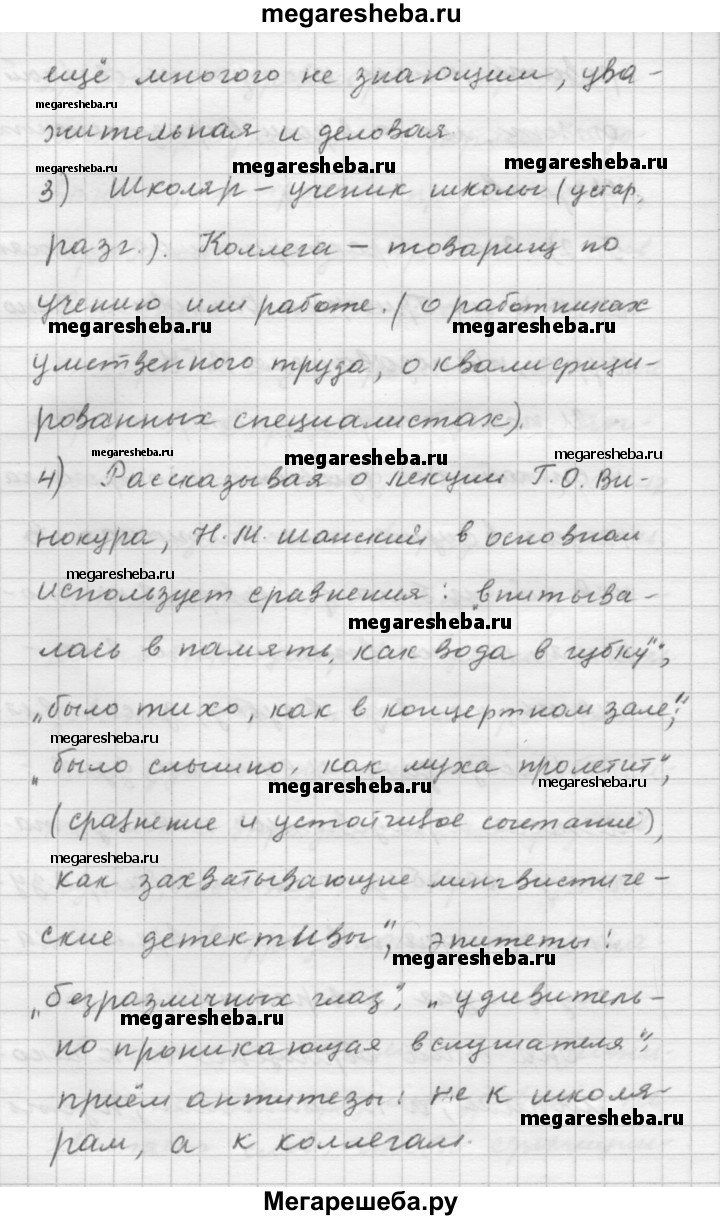 megaresheba.ru
ещё многого не знающим, ува-
megaresheba.ru
жительная и деловая.
megaresheba.ru megaresheba.ru megaresheba.ru
3) Школяр – ученик школы (устар,
разг.). Коллега – товарищ по
учению или работе. (о работниках
megaresheba.ru megaresheba.ru
умственного труда, о квалифици-
рованных специалистах).
megaresheba.ru megaresheba.ru megaresheba.ru
4) Рассказывая о лекции Г.О. Ви-
нокура, Н.М. Шанский в основном
megaresheba.ru
использует сравнения: „впитыва-
megaresheba.ru
лась в память, как вода в губку";
„было тихо, как в концертном зале";
megaresheba.ru
„было слышно, как муха пролетит",
megaresheba.ru megaresheba.ru
(сравнение и устойчивое сочетание),
megaresheba.ru
как захватывающие лингвистиче-
ские детективы", эпитеты:
megaresheba.ru
„безразличных глаз", „удивитель-
megaresheba.ru
но проникающая в слушателя";
приём антитезы: не к школя-
megaresheba.ru
рам, а к коллегам.
Мегарешеба.ру